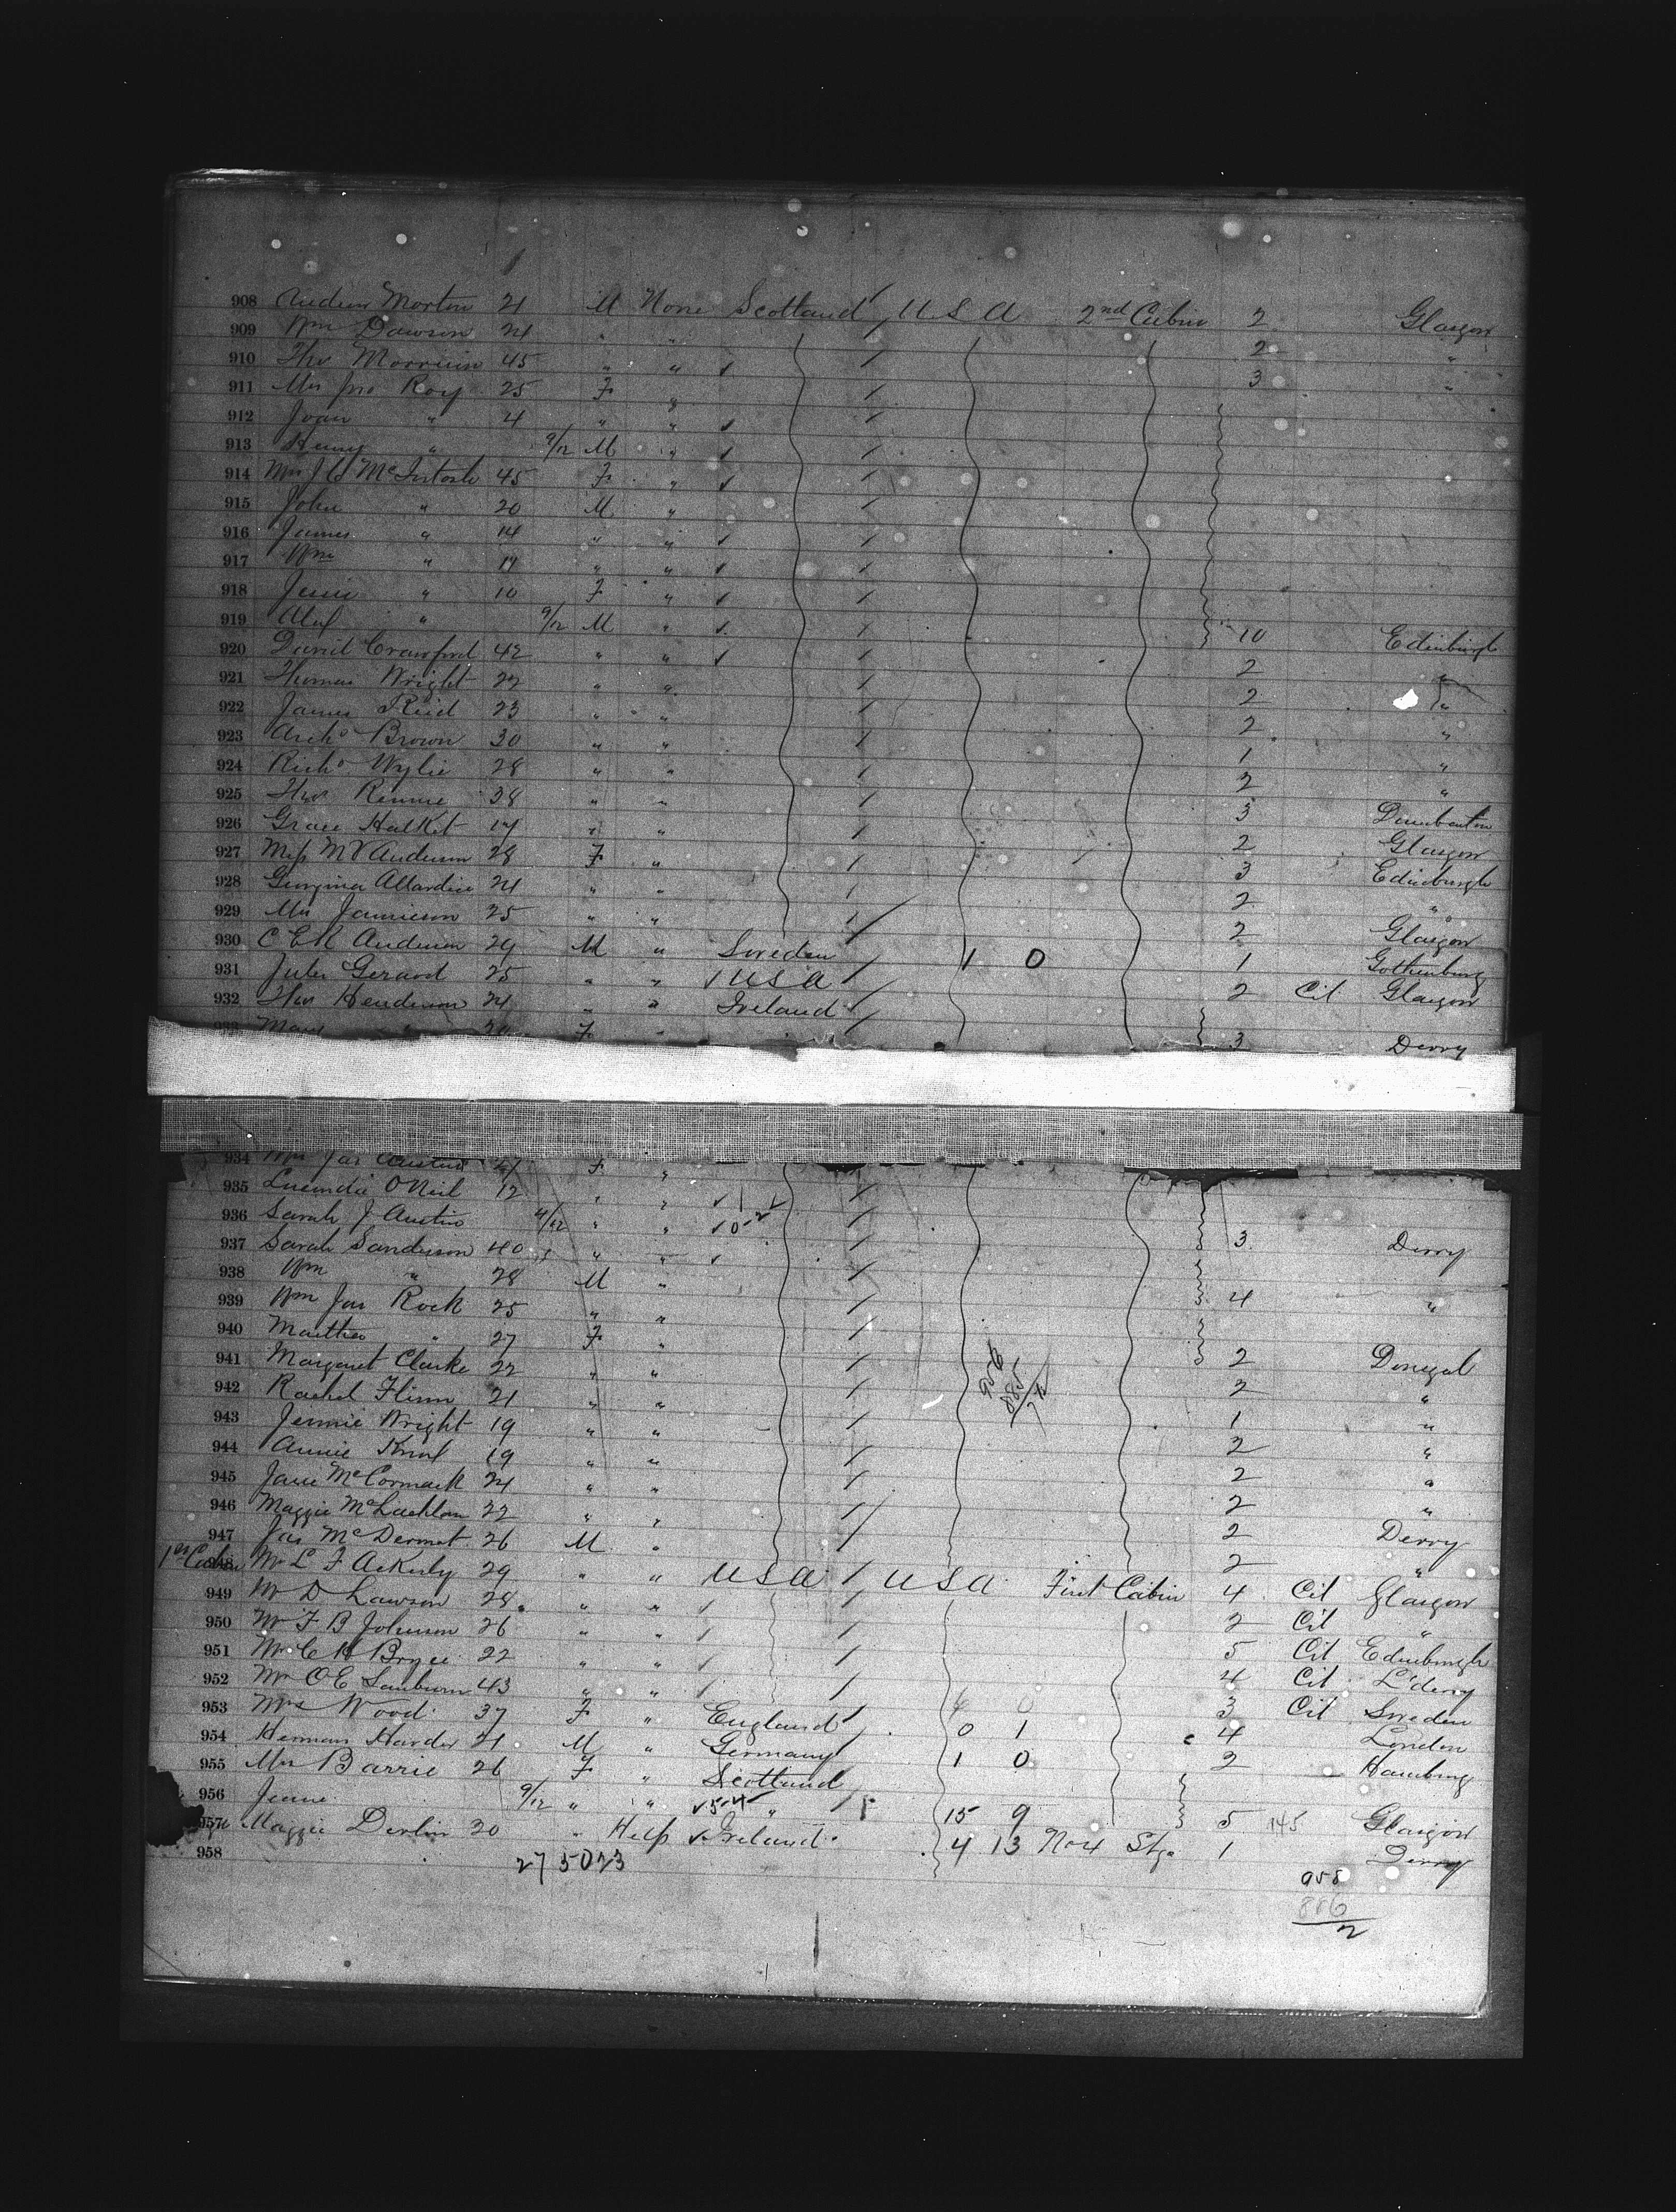 908 Andrew Morton 21 M None Scotland / U S A 2nd Cabin 2 Glasgow
909 Wm Dawson 24 " " / 2 "
910 Thos Morrison 45 " " ✓ / 3 "
911 Mrs Jno Roy 25 F " /
912 Joan " 4 " " ✓ /
913 Henry " 9/12 M " ✓ /
914 Mrs J G McIntosh 45 F " ✓ /
915 John " 20 M " /
916 James " 14 " " ✓ /
917 Wm " " " ✓ /
918 " 10 F " ✓ /
919 " 9/12 M " ✓ / 10 Edinburgh
920 David Crawford 42 " " ✓ / 2 "
921 Thomas Wright 22 " " / 2 "
922 James Reid 23 " " / 2 "
923 Archd Brown 30 " " / 1 "
924 Richd Wylie 28 " " / 2 "
925 Thos Rennie 38 " " / 3 Dumbarton
926 Grace Halket 17 " " / 2 Glasgow
927 Miss M V Anderson 28 F " / 3 Edinburgh
928 Georgina Allardice 24 " " / 2 "
929 Mrs Jamieson 25 " " / 2 Glasgow
930 C E R Anderson 29 M " Sweden / 1 0 1 Gothenburg
931 Jules Gerard 25 " " / U S A / 2 Cit Glasgow
932 Thos Henderson 24 " " Ireland /
933 Mary " F " 3 Derry
934 Mrs Jas Austin 27 F "
935 Lucinda O'Neil 12 " " ✓ 1 /
936 Sarah J Austin 4/12 " " ✓ 0-2 / 3 Derry
937 Sarah Sanderson 40 " " ✓ /
938 Wm " 28 M " / 4 "
939 Wm Jas Rock 25 " " /
940 Martha " 27 F " / 2 Donegal
941 Margaret Clarke 22 " " / 2 "
942 Rachel Flinn 21 " " / 1 "
943 Jennie Wright 19 " " / 2 "
944 Annie Knox 19 " " / 2 "
945 Jane McCormack 24 " " / 2 "
946 Maggie McLachlan 22 " " / 2 Derry
947 Jas McDermot 26 M " / 2 "
1st Cabin 948 Mr L F Ackerly 29 " " U S A / U S A First Cabin 4 Cit Glasgow
949 Mr D Lawson 28 " " ✓ / 2 Cit "
950 Mr F B Johnson 26 " " / / 5 Cit Edinburgh
951 Mr C H Bryce 22 " " ✓ / 4 Cit L'derry
952 Mr O E Sanburn 43 " " / / 3 Cit Sweden
953 Mrs Wood 37 F " England / 0 1 4 London
954 Herman Harder 21 M " Germany / 1 0 2 Hamburg
955 Mrs Barrie 26 F " Scotland /
956 9/12 " " ✓ 5-4 " / 15 9 5 145 Glasgow
957 Maggie Devlin 20 " Help ✓ Ireland 4 13 No 4 Stge 1 Derry
958
27 5023
958
886
2